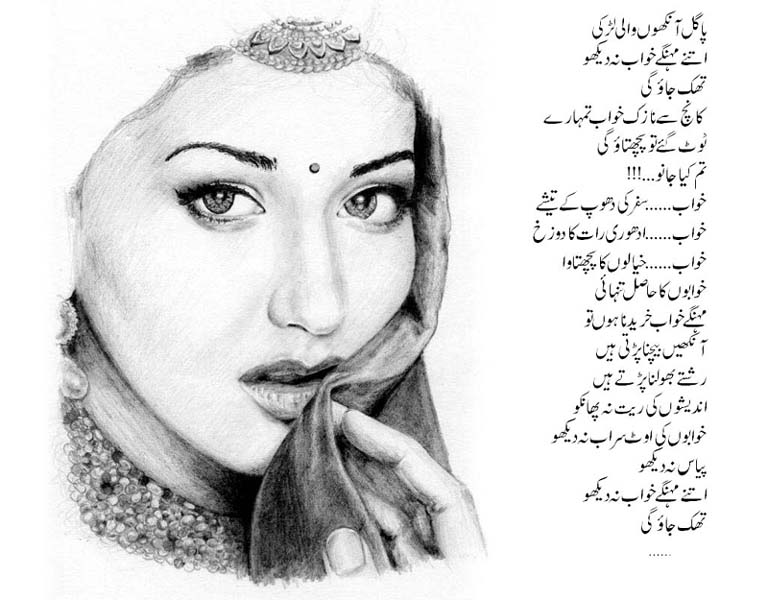 پاگل آنکھوں والی لڑکی
اتنے مہنگے خواب نہ دیکھو
تھک جاؤ گی
کانچ سے نازک خواب تمہارے
ٹوٹ گئے تو پچھتاؤ گی
تم کیا جانو...!!!
خواب......سفر کی دھوپ کے تیشے
خواب......ادھوری رات کا دوزخ
خواب......خیالوں کا پچھتاوا
خوابوں کا حاصل تنہائی
مہنگے خواب خریدنا ہوں تو
آنکھیں بیچنا پڑتی ہیں
رشتے بھولنا پڑتے ہیں
اندیشوں کی ریت نہ پھانکو
خوابوں کی اوٹ سراب نہ دیکھو
پیاس نہ دیکھو
اتنے مہنگے خواب نہ دیکھو
تھک جاؤ گی
......